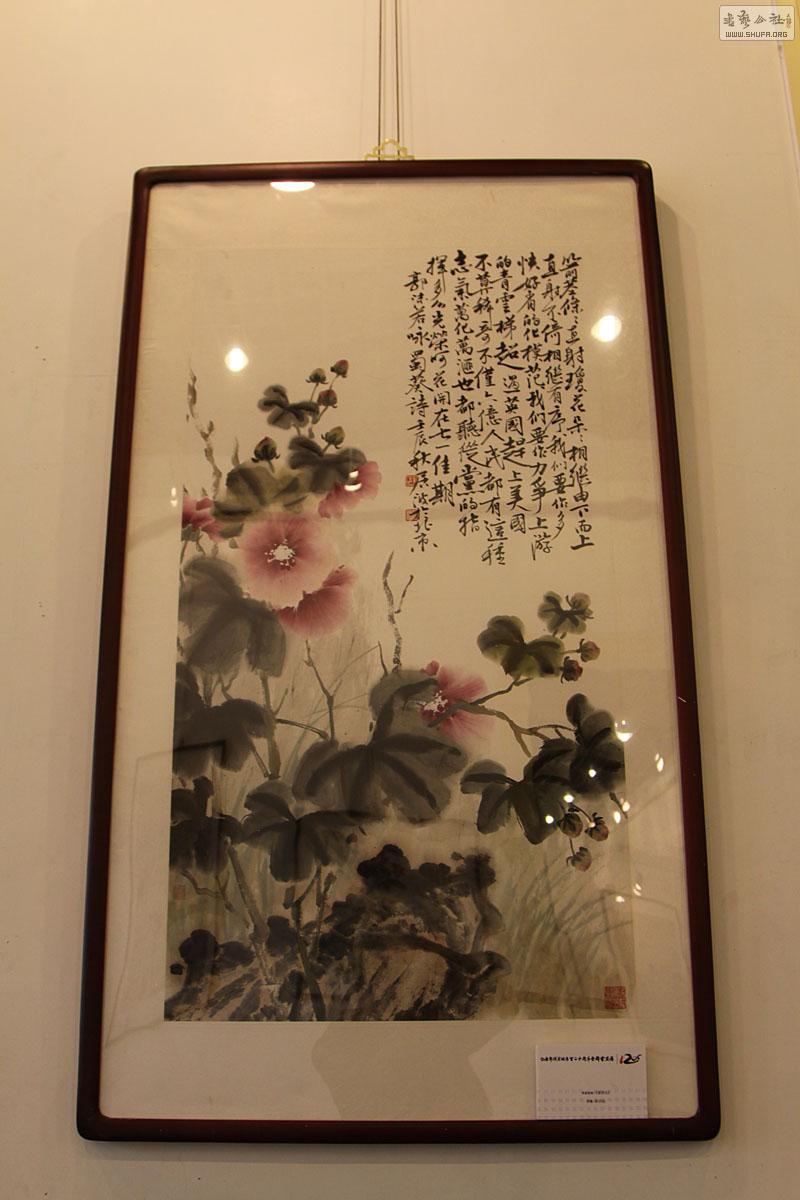 箭茎條々直射琼花朵々相继由下而上
直射不倚相继有序我们要作多
快好省的化模范我们要作力争上游
的青雲梯超過英國趕上美國
不算稀哥不僅六億人民都有這種
志氣萬化萬滙也都聽從黨的指
揮多么光榮呵花開在七一佳期
郭沫若咏蜀葵詩壬辰秋
書藝公社
WWW.SHUFA.ORG
120